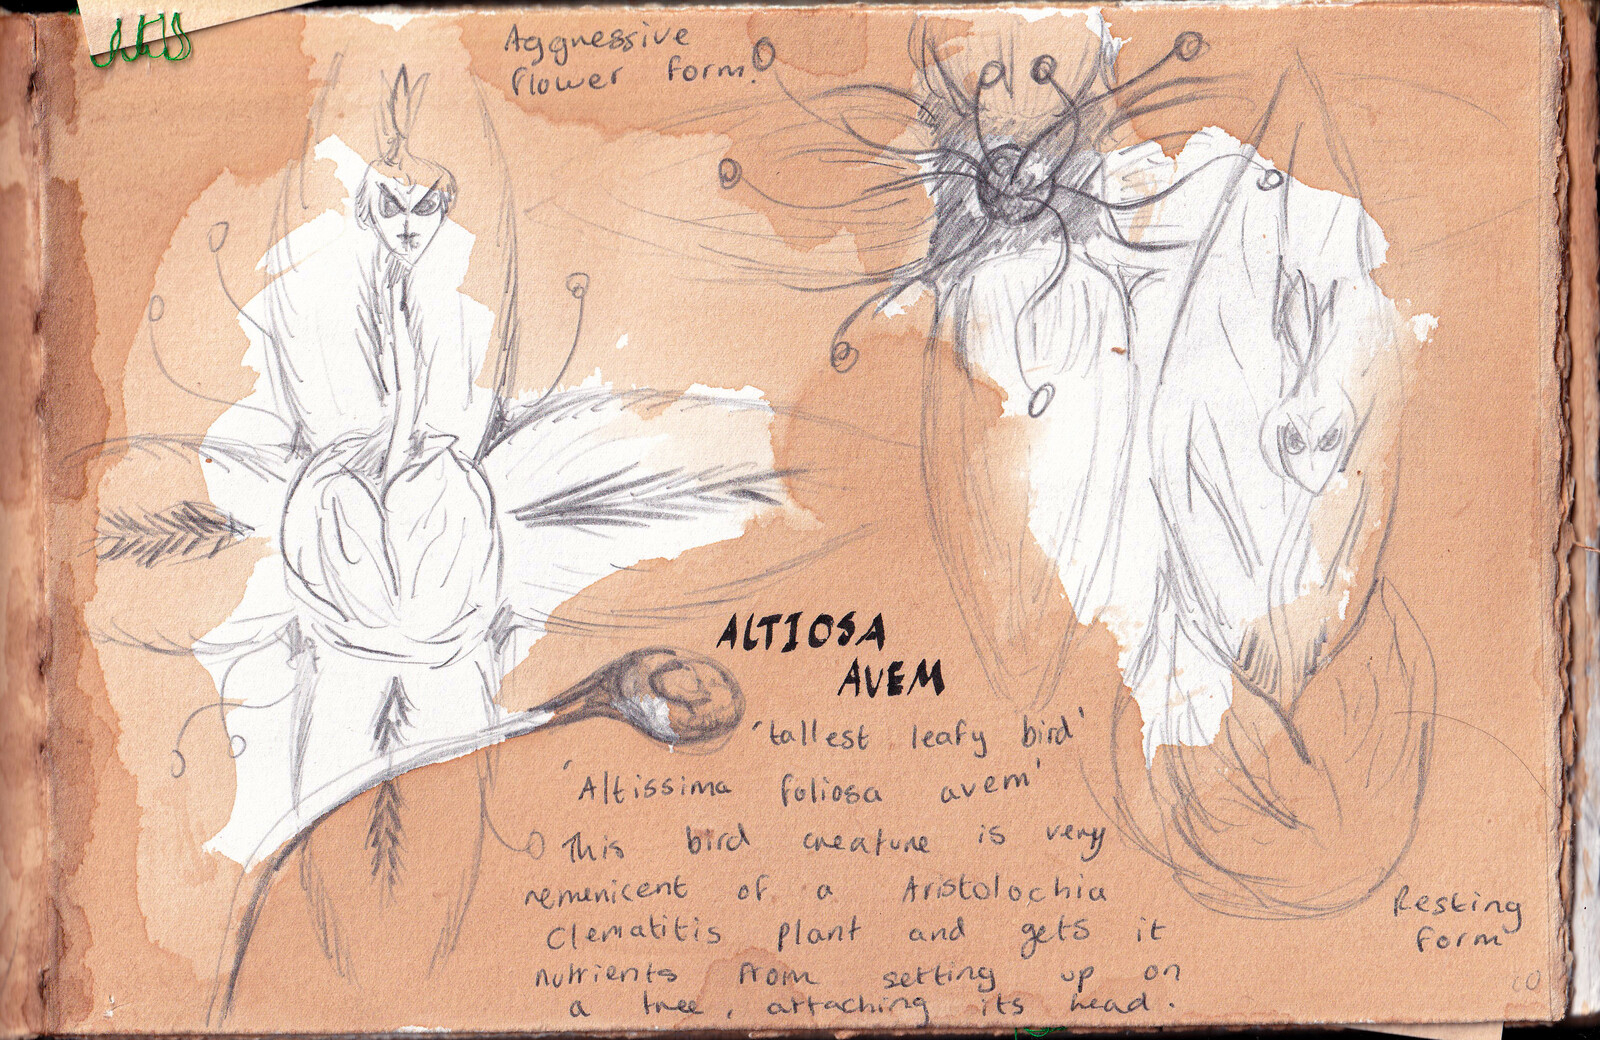 Aggressive
flower form.
ALTIOSA
AVEM
'tallest leafy bird'
'Altissima foliosa avem'
This bird creature is very
remenicent of a Aristolochia
Clematitis plant and gets it
nutrients from setting up on
a tree, attaching its head.
Resting
form